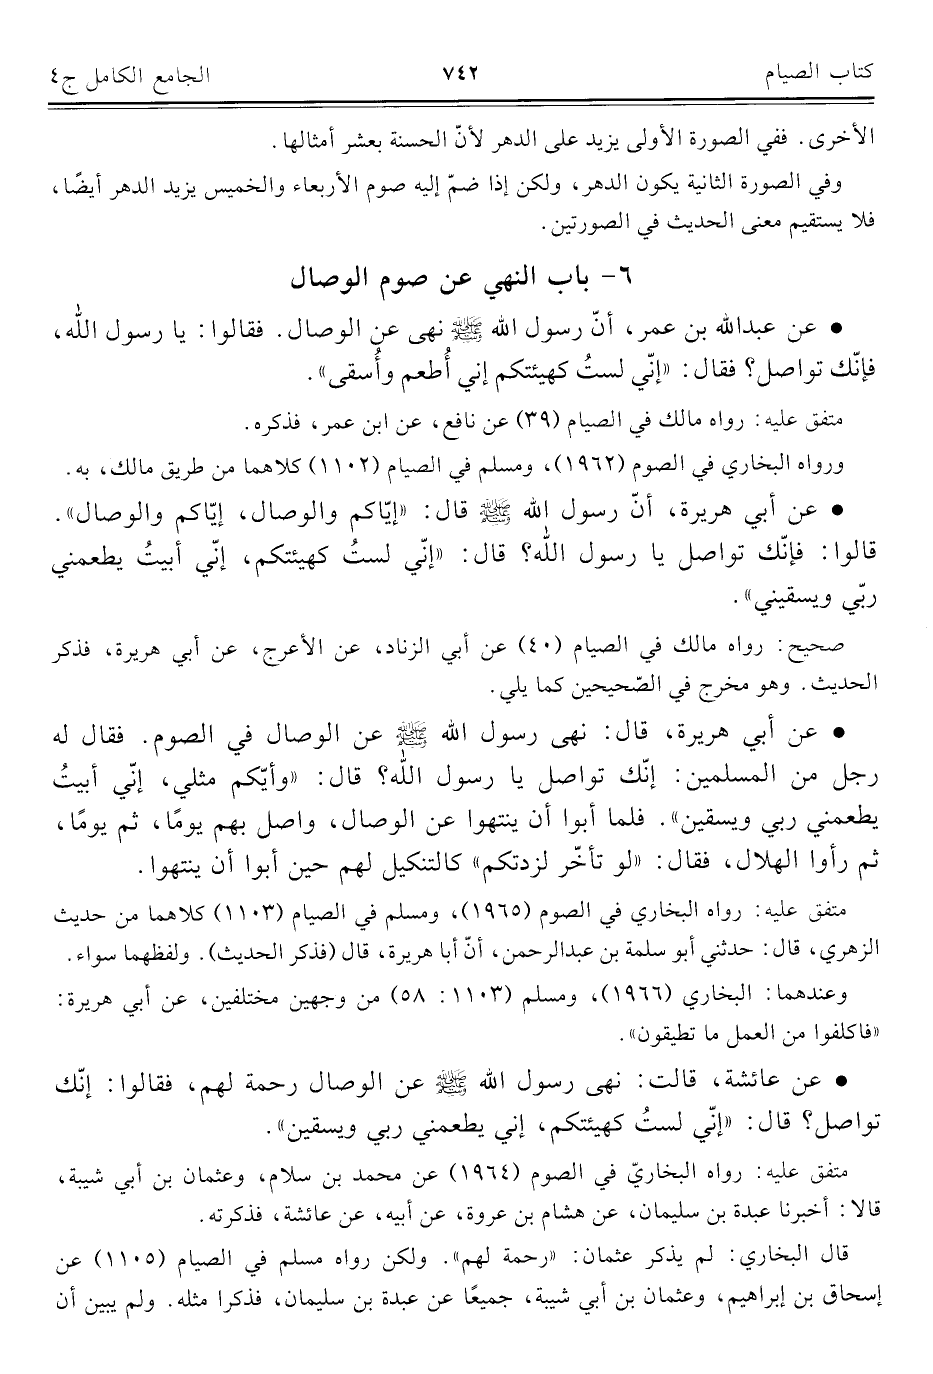 كتاب الصيام ٧٤٢ الجامع الكامل ج٤
الأخرى. ففي الصورة الأولى يزيد على الدهر لأنّ الحسنة بعشر أمثالها.
وفي الصورة الثانية يكون الدهر، ولكن إذا ضمّ إليه صوم الأربعاء والخميس يزيد الدهر أيضًا،
فلا يستقيم معنى الحديث في الصورتين.
٦- باب النهي عن صوم الوصال
• عن عبدالله بن عمر، أنّ رسول الله ﷺ نهى عن الوصال. فقالوا: يا رسول الله،
فإنّك تواصل؟ فقال: «إنّي لستُ كهيئتكم إني أُطعم وأُسقى».
متفق عليه: رواه مالك في الصيام (٣٩) عن نافع، عن ابن عمر، فذكره.
ورواه البخاري في الصوم (١٩٦٢)، ومسلم في الصيام (١١٠٢) كلاهما من طريق مالك، به.
• عن أبي هريرة، أنّ رسول الله ﷺ قال: «إيّاكم والوصال، إيّاكم والوصال».
قالوا: فإنّك تواصل يا رسول الله؟ قال: «إنّي لستُ كهيئتكم، إنّي أبيتُ يطعمني
ربّي ويسقيني».
صحيح: رواه مالك في الصيام (٤٠) عن أبي الزناد، عن الأعرج، عن أبي هريرة، فذكر
الحديث. وهو مخرج في الصّحيحين كما يلي.
• عن أبي هريرة، قال: نهى رسول الله ﷺ عن الوصال في الصوم. فقال له
رجل من المسلمين: إنّك تواصل يا رسول الله؟ قال: «وأيّكم مثلي، إنّي أبيتُ
يطعمني ربي ويسقين». فلما أبوا أن ينتهوا عن الوصال، واصل بهم يومًا، ثم يومًا،
ثم رأوا الهلال، فقال: «لو تأخّر لزدتكم» كالتنكيل لهم حين أبوا أن ينتهوا.
متفق عليه: رواه البخاري في الصوم (١٩٦٥)، ومسلم في الصيام (١١٠٣) كلاهما من حديث
الزهري، قال: حدثني أبو سلمة بن عبدالرحمن، أنّ أبا هريرة، قال (فذكر الحديث). ولفظهما سواء.
وعندهما: البخاري (١٩٦٦)، ومسلم (١١٠٣: ٥٨) من وجهين مختلفين، عن أبي هريرة:
«فاكلفوا من العمل ما تطيقون».
• عن عائشة، قالت: نهى رسول الله ﷺ عن الوصال رحمة لهم، فقالوا: إنّك
تواصل؟ قال: «إنّي لستُ كهيئتكم، إني يطعمني ربي ويسقين».
متفق عليه: رواه البخاريّ في الصوم (١٩٦٤) عن محمد بن سلام، وعثمان بن أبي شيبة،
قالا: أخبرنا عبدة بن سليمان، عن هشام بن عروة، عن أبيه، عن عائشة، فذكرته.
قال البخاري: لم يذكر عثمان: «رحمة لهم». ولكن رواه مسلم في الصيام (١١٠٥) عن
إسحاق بن إبراهيم، وعثمان بن أبي شيبة، جميعًا عن عبدة بن سليمان، فذكرا مثله. ولم يبين أن